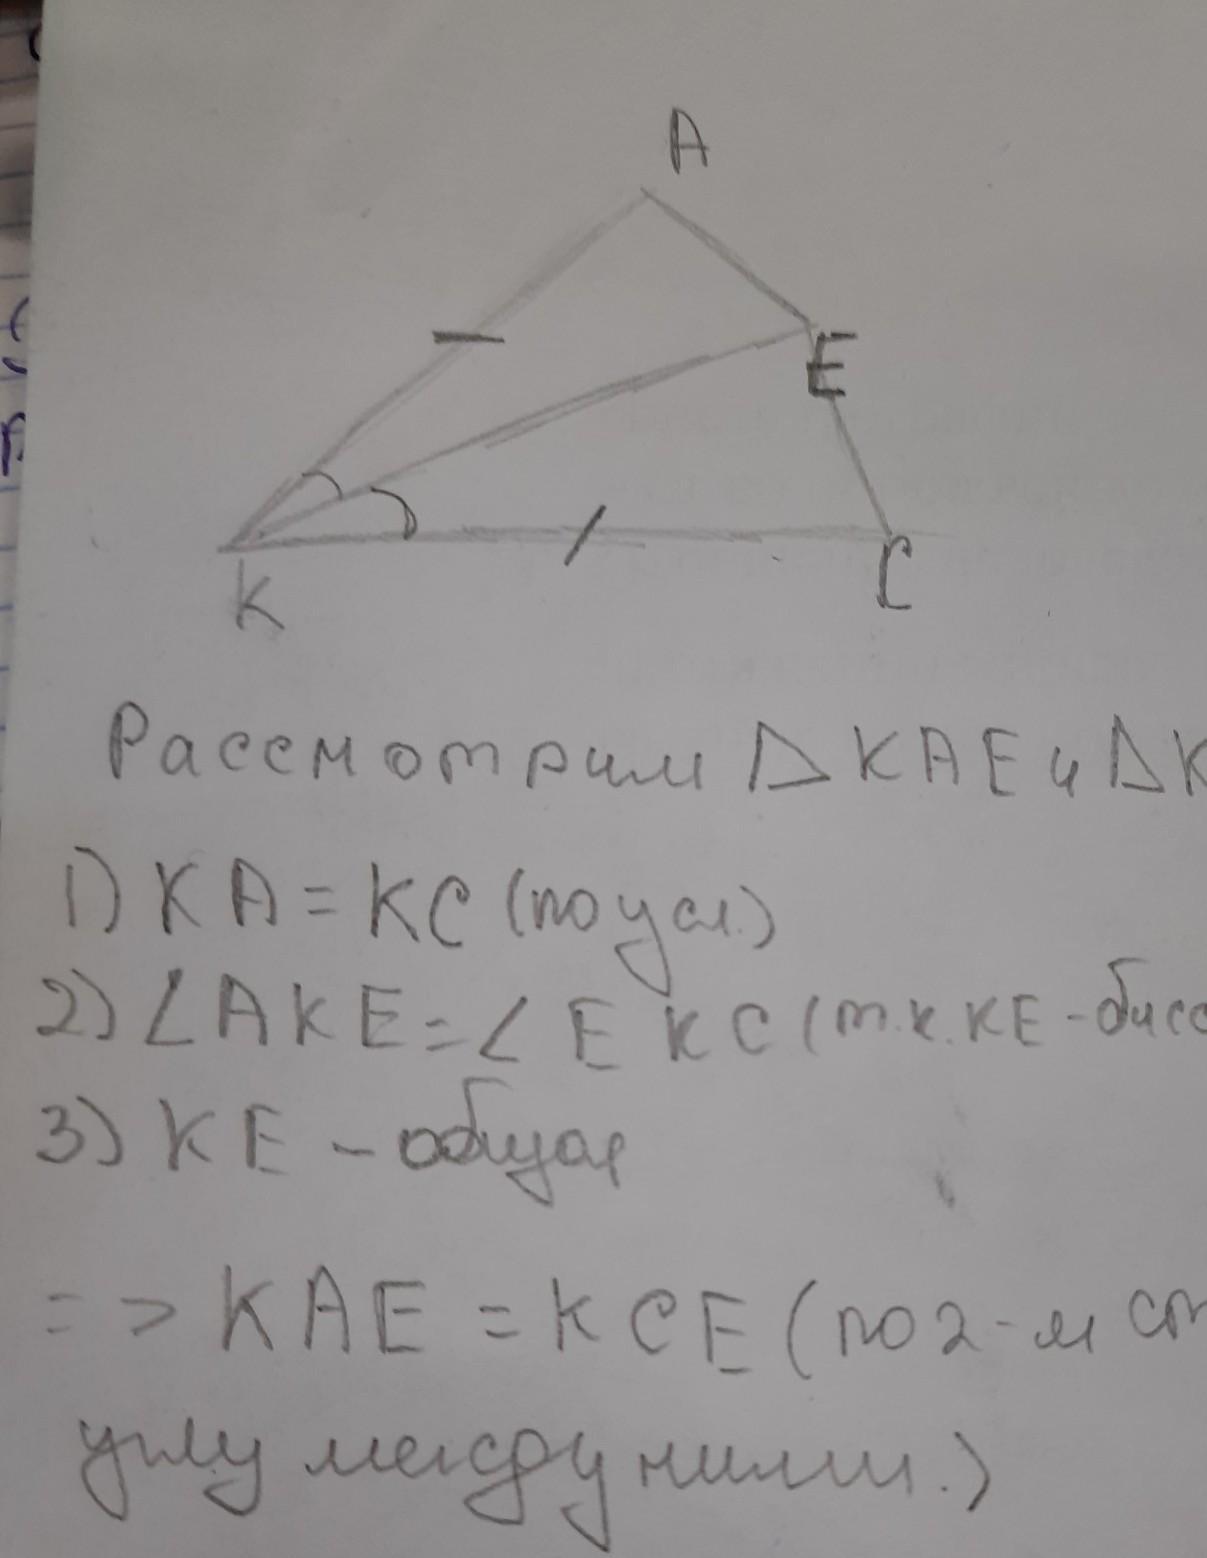 A
E
K
C
Рассмотрим ΔKAE и ΔK
1) KA = KC (по усл.)
2) ∠AKE = ∠EKC (т.к. KE - бисс
3) KE - общая
=> KAE = KCE (по 2-м ст
углу между ними.)